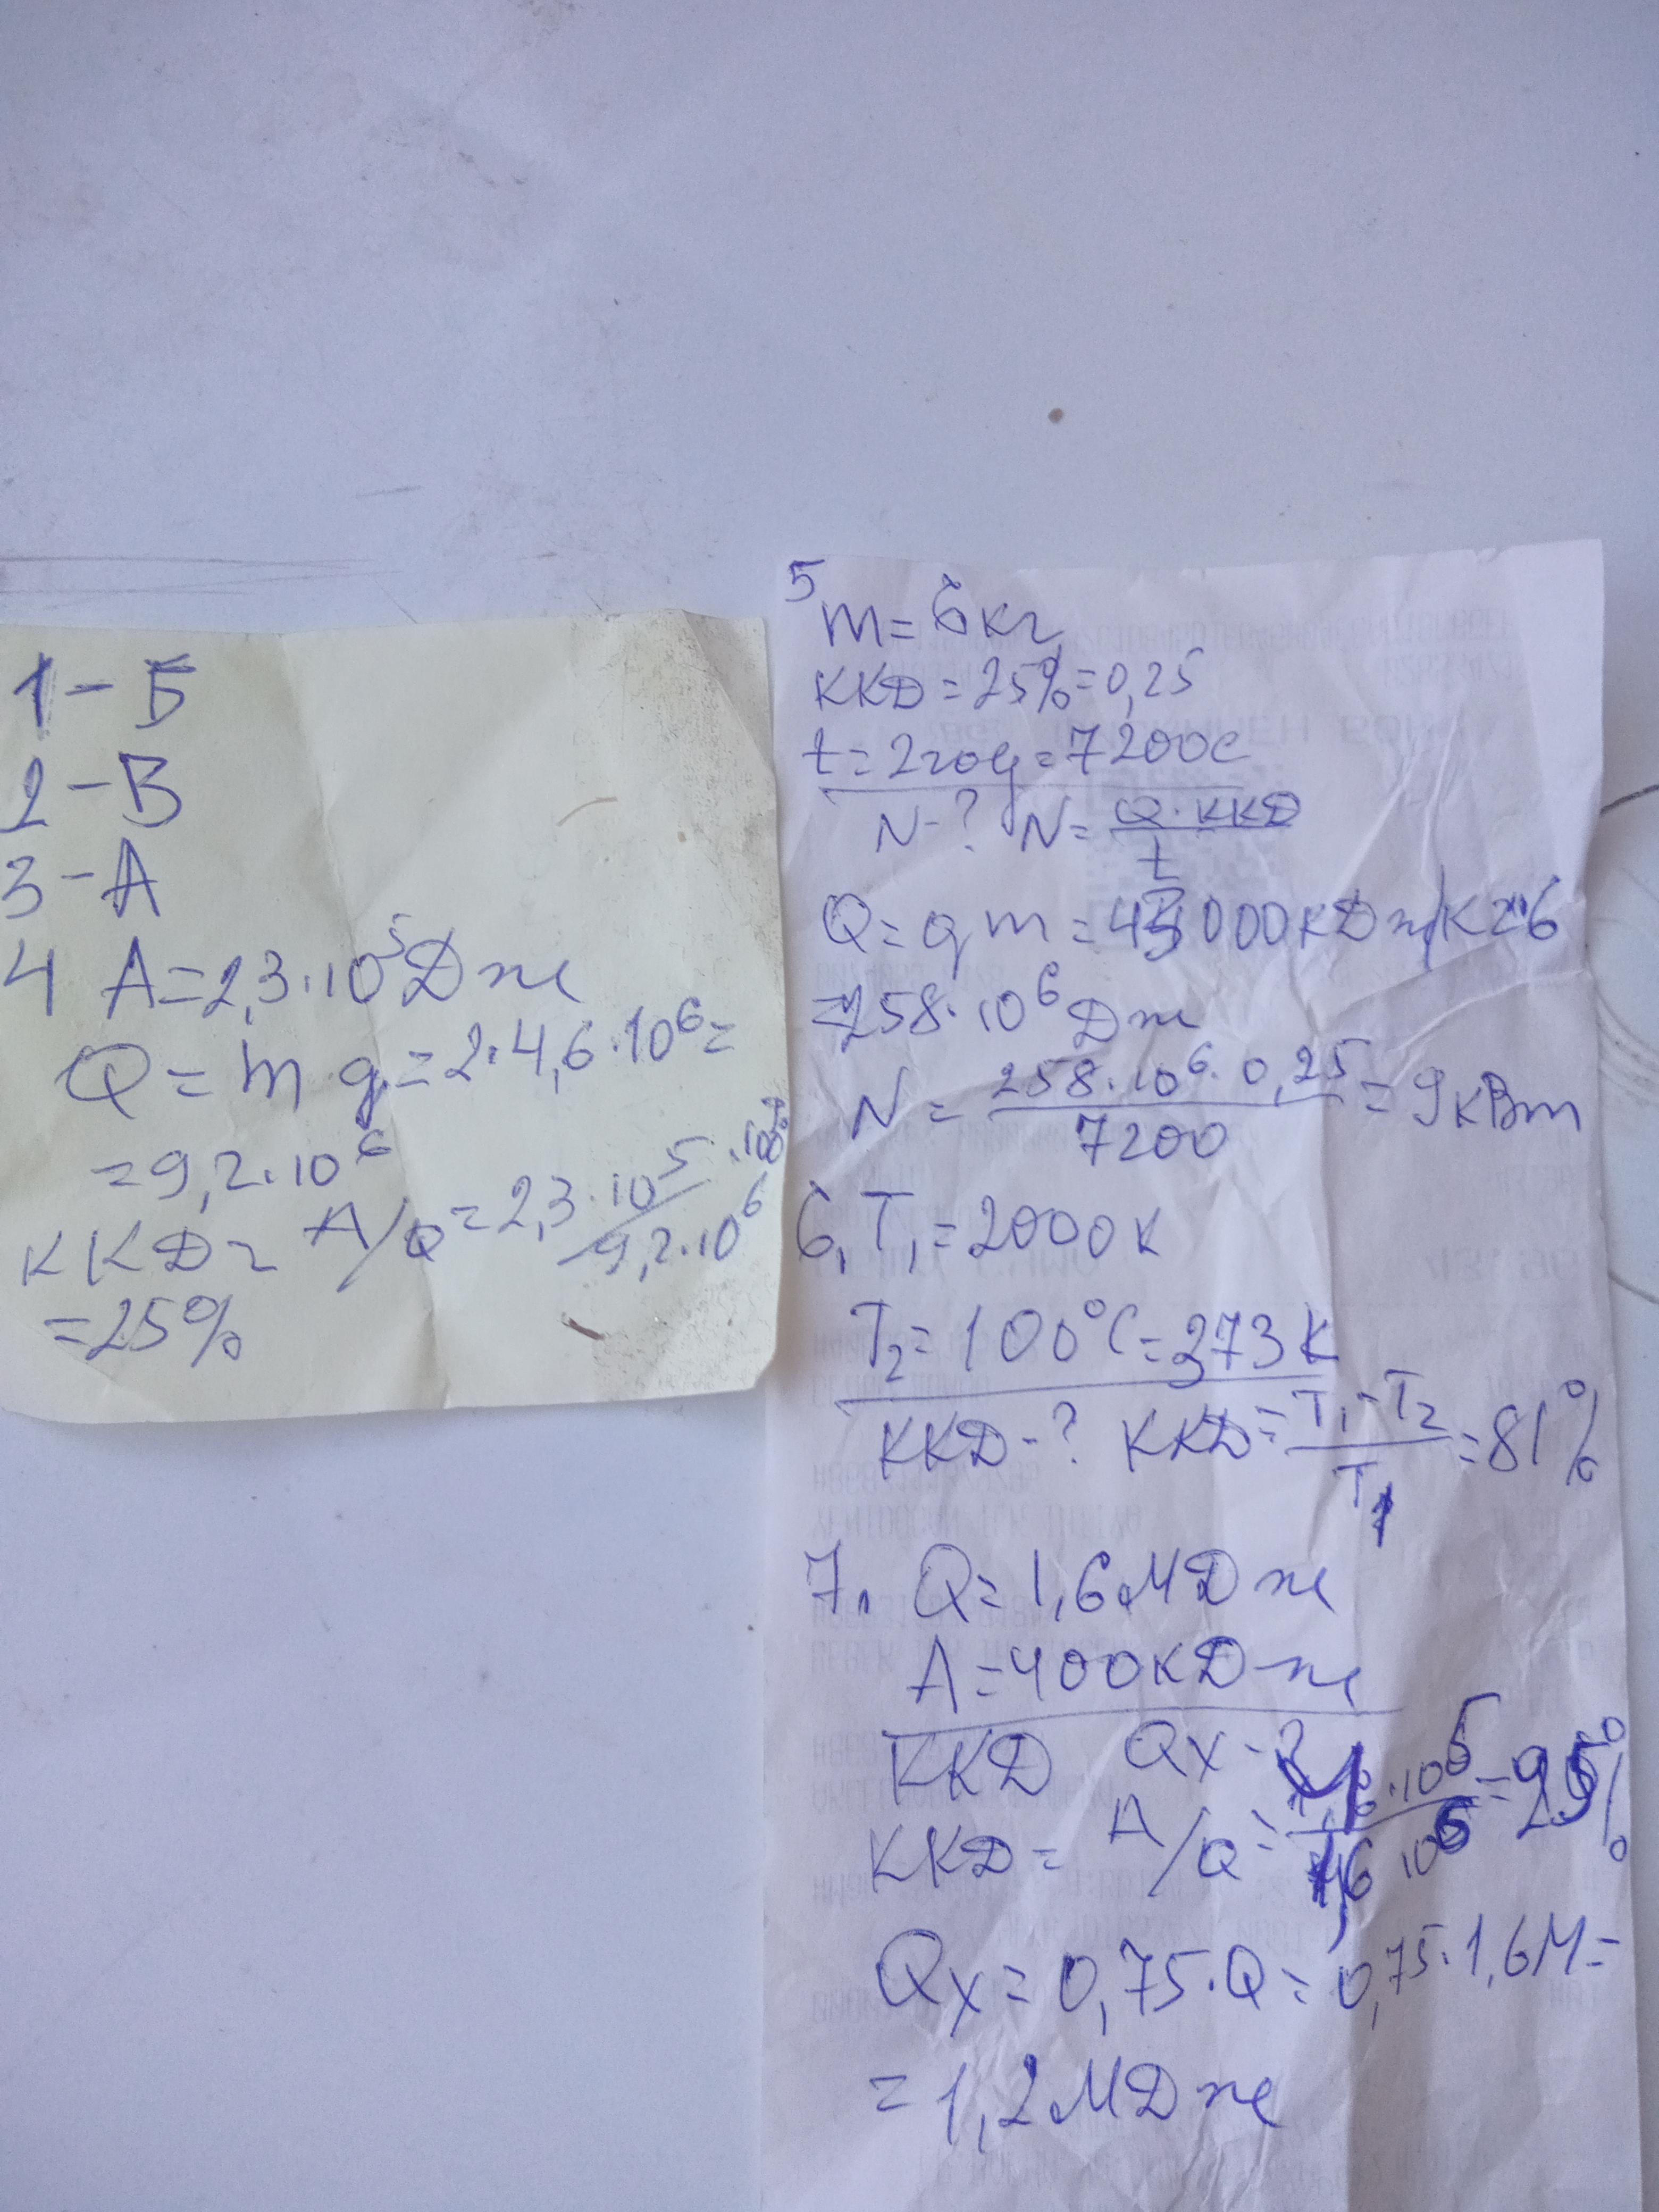 1 - Б
2 - В
3 - А
4 А = 2,3 · 10⁵ Дж
Q = m q = 2 · 4,6 · 10⁶ =
= 9,2 · 10⁶
ККД = А/Q = 2,3 · 10⁵ · 100% / 9,2 · 10⁶
= 25%
5
m = 6 кг
ККД = 25% = 0,25
t = 2 год = 7200 с
N - ? N = Q · ККД / t
Q = q m = 43000 кДж/кг · 6
= 258 · 10⁶ Дж
N = 258 · 10⁶ · 0,25 / 7200 = 9 кВт
6, T₁ = 2000 К
T₂ = 100°С = 373 К
ККД - ? ККД = T₁ - T₂ / T₁ = 81%
7. Q = 1,6 МДж
А = 400 кДж
ККД Qх - ?
ККД = А/Q = 4 · 10⁵ / 1,6 · 10⁶ = 25%
Qх = 0,75 · Q = 0,75 · 1,6 М =
= 1,2 МДж